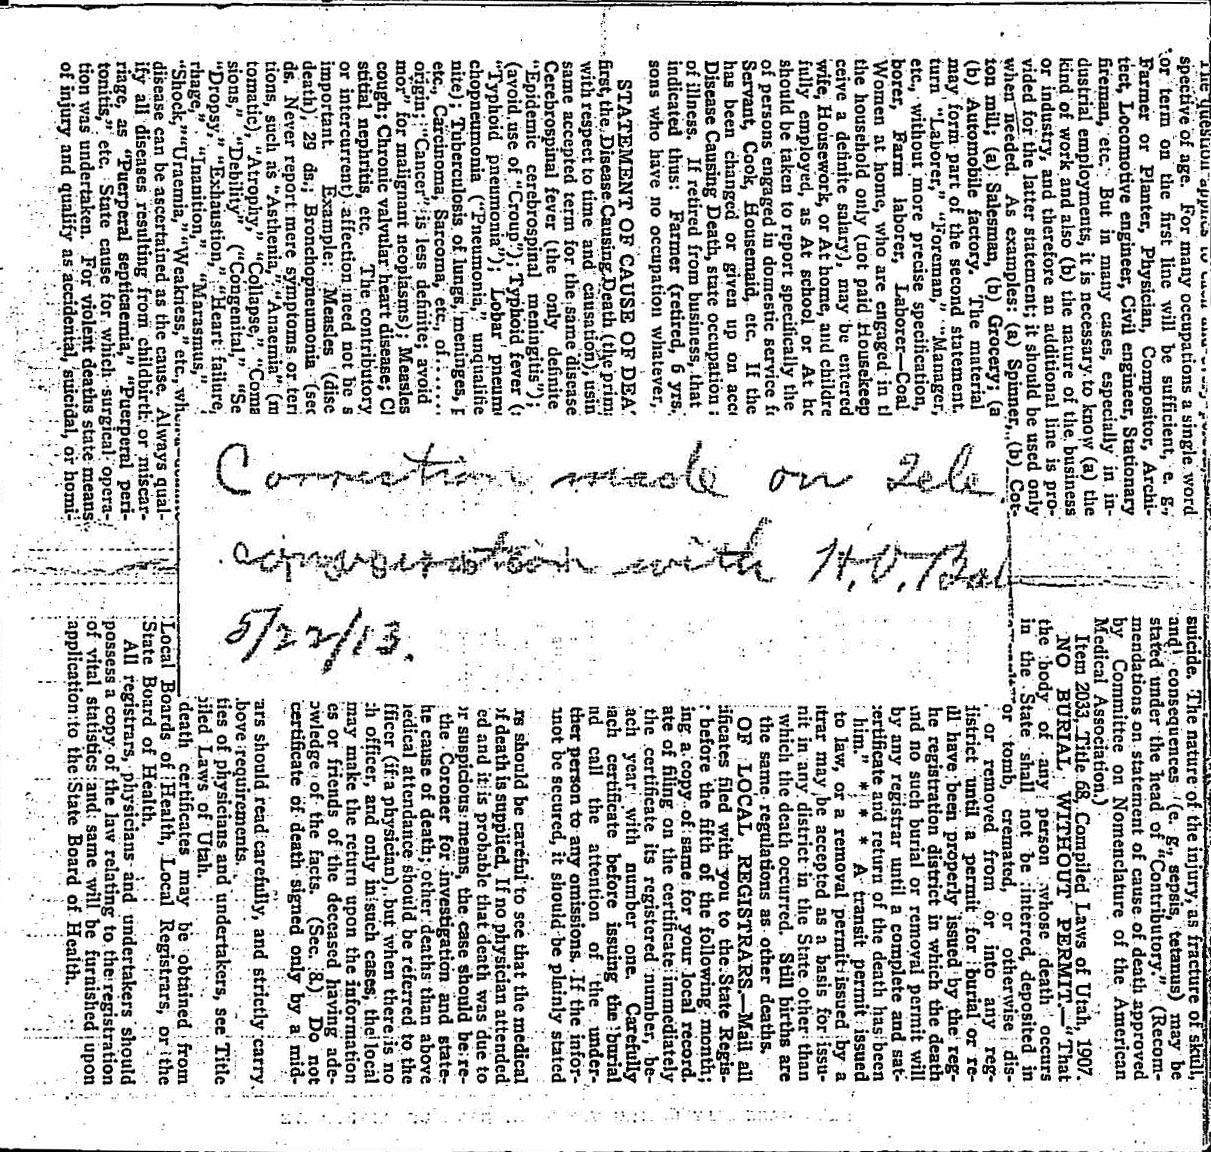 spective of age. For many occupations a single word
or term on the first line will be sufficient, e. g.,
Farmer or Planter, Physician, Compositor, Archi-
tect, Locomotive engineer, Civil engineer, Stationary
fireman, etc. But in many cases, especially in in-
dustrial employments, it is necessary to know (a) the
kind of work and also (b) the nature of the business
or industry, and therefore an additional line is pro-
vided for the latter statement; it should be used only
when needed. As examples: (a) Spinner, (b) Cot-
ton mill; (a) Salesman, (b) Grocery; (a
(b) Automobile factory. The material
may form part of the second statement.
turn "Laborer," "Foreman," "Manager,
etc., without more precise specification,
borer, Farm laborer, Laborer—Coal
Women at home, who are engaged in t
the household only (not paid Housekeep
ceive a definite salary), may be entered
wife, Housework, or At home, and childre
fully employed, as At school or At ho
should be taken to report specifically the
of persons engaged in domestic service f
Servant, Cook, Housemaid, etc. If the
has been changed or given up on acc
Disease Causing Death, state occupation
of illness. If retired from business, that
indicated thus: Farmer (retired, 6 yrs.
sons who have no occupation whatever,
STATEMENT OF CAUSE OF DEA
first, the Disease Causing Death (the prim
with respect to time and causation), usin
same accepted term for the same disease
Cerebrospinal fever (the only definite
"Epidemic cerebrospinal meningitis");
(avoid use of "Croup"); Typhoid fever (
"Typhoid pneumonia"); Lobar pneum
chopneumonia ("Pneumonia," unqualifie
nite); Tuberculosis of lungs, meninges, p
etc., Carcinoma, Sarcoma, etc., of......
origin; "Cancer" is less definite; avoid
mor" for malignant neoplasms); Measles
cough; Chronic valvular heart disease; C
stitial nephritis, etc. The contributory
or intercurrent) affection need not be s
important. Example: Measles (disc
death), 29 ds.; Bronchopneumonia (sec
ds. Never report mere symptoms or ter
tions, such as "Asthenia," "Anaemia" (m
tomatic), "Atrophy," "Collapse," "Coma
sions," "Debility" ("Congenital," "Se
"Dropsy," "Exhaustion," "Heart failure,
rhage," "Inanition," "Marasmus,"
"Shock," "Uraemia," "Weakness," etc., wh
disease can be ascertained as the cause. Always qual-
ify all diseases resulting from childbirth or miscar-
riage, as "Puerperal septicaemia," "Puerperal peri-
tonitis," etc. State cause for which surgical opera-
tion was undertaken. For violent deaths state means
of injury and qualify as accidental, suicidal, or homi-
Correction made on Tele
conversation with H.V. Bal
5/22/13.
suicide. The nature of the injury, as fracture of skull,
and consequences (e. g., sepsis, tetanus) may be
stated under the head of "Contributory." (Recom-
mendations on statement of cause of death approved
by Committee on Nomenclature of the American
Medical Association.)
Item 2033, Title 68, Compiled Laws of Utah, 1907.
NO BURIAL WITHOUT PERMIT.—"That
the body of any person whose death occurs
in the State shall not be interred, deposited in
or tomb, cremated, or otherwise dis-
or removed from or into any reg-
district until a permit for burial or re-
ll have been properly issued by the reg-
he registration district in which the death
nd no such burial or removal permit will
by any registrar until a complete and sat-
ertificate and return of the death has been
him." * * * A transit permit issued
to law, or a removal permit issued by a
trar may be accepted as a basis for issu-
nit in any district in the State other than
which the death occurred. Still births are
the same regulations as other deaths.
OF LOCAL REGISTRARS.—Mail all
ificates filed with you to the State Regis-
before the fifth of the following month;
ing a copy of same for your local record.
ate of filing on the certificate immediately
the certificate its registered number, be-
ach year with number one. Carefully
ach certificate before issuing the burial
nd call the attention of the under-
ther person to any omissions. If the infor-
nnot be secured, it should be plainly stated
rs should be careful to see that the medical
of death is supplied. If no physician attended
ed and it is probable that death was due to
or suspicious means, the case should be re-
the Coroner for investigation and state-
he cause of death; other deaths than above
edical attendance should be referred to the
fficer (if a physician), but when there is no
h officer, and only in such cases, the local
may make the return upon the information
es or friends of the deceased having ade-
owledge of the facts. (Sec. 8.) Do not
certificate of death signed only by a mid-
ars should read carefully, and strictly carry
bove requirements.
ties of physicians and undertakers, see Title
piled Laws of Utah.
death certificates may be obtained from
Local Boards of Health, Local Registrars, or the
State Board of Health.
All registrars, physicians and undertakers should
possess a copy of the law relating to the registration
of vital statistics and same will be furnished upon
application to the State Board of Health.